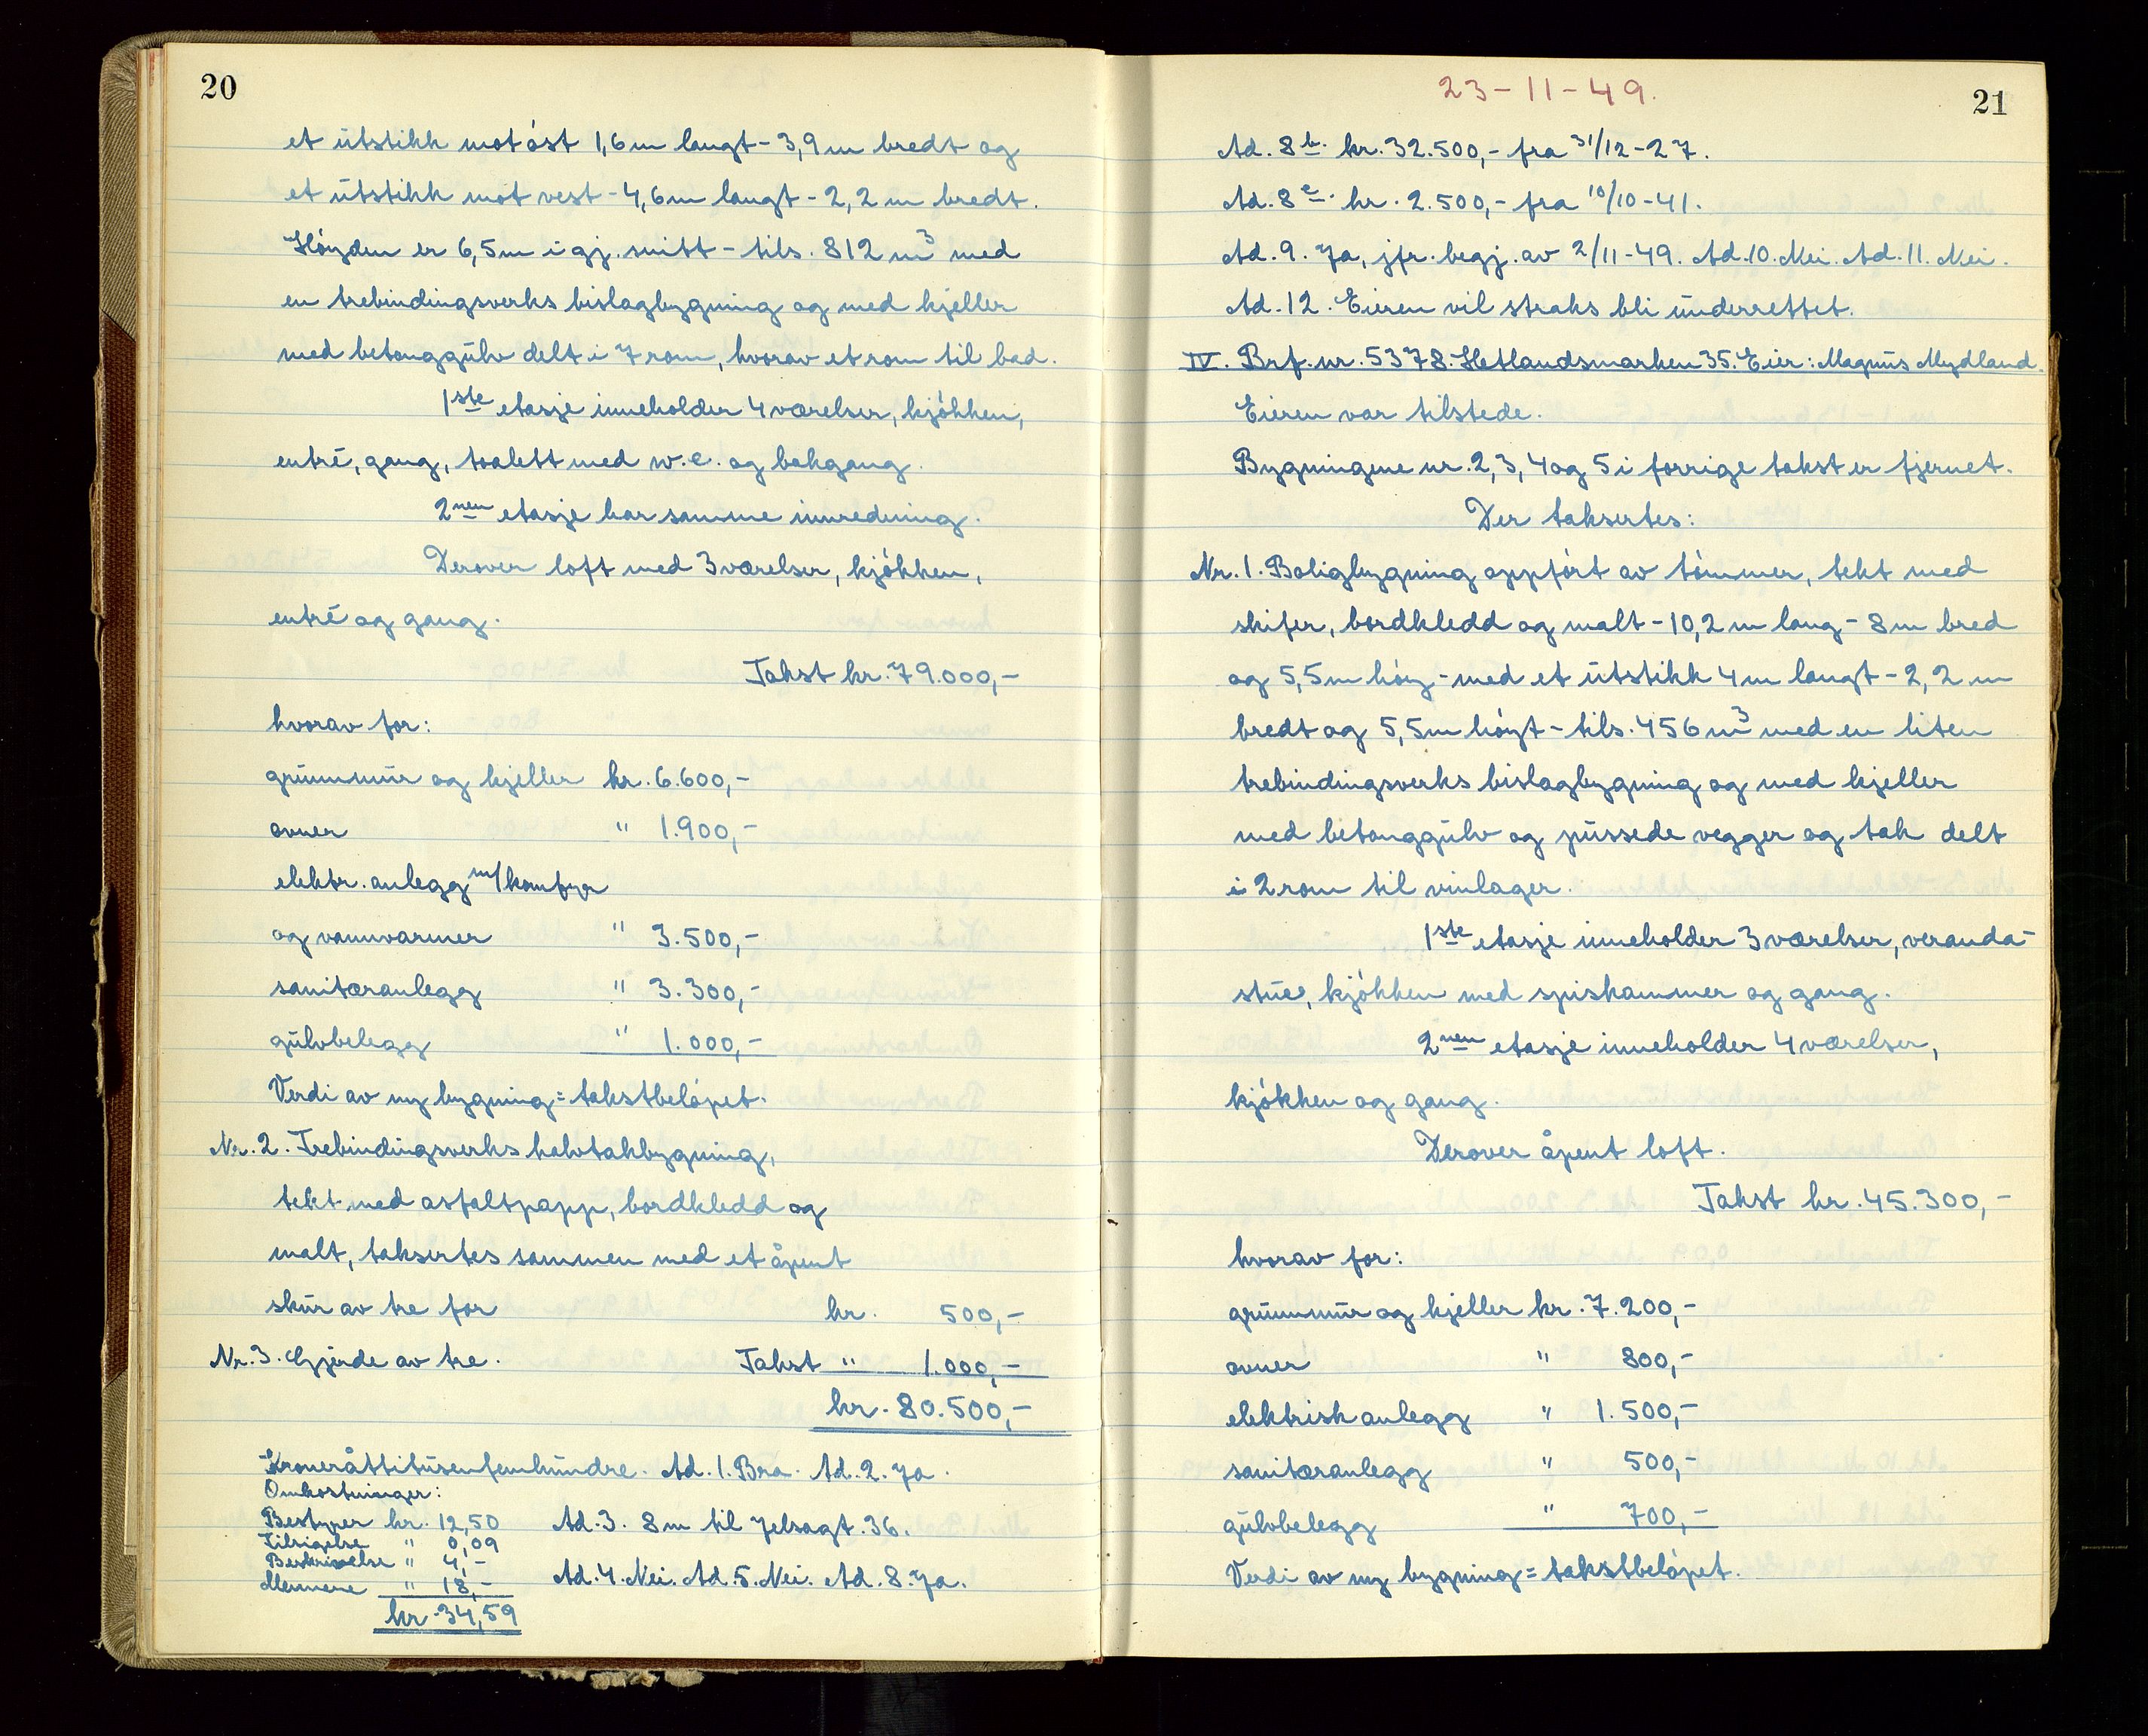 20
et útstikk mot óst 1,6 m langt - 3,9 m bredt og
et útstikk mot vest - 4,6 m langt - 2,2 m bredt.
Hóyden er 6,5 m i gj. snitt - tils. 812 m³ med
en trebindingsverks bislagbygning og med kjeller
med betonggúlv delt i 7 rom, hvorav et rom til bad.
1ste etasje inneholder 4 værelser, kjókken,
entré, gang, toalett med w.c. og bakgang.
2nen etasje har samme innredning.
Derover loft med 3 værelser, kjókken,
entré og gang.
Takst kr. 79.000,-
hvorav for:
grúnnmúr og kjeller kr. 6.600,-
ovner " 1.900,-
elektr. anlegg m/komfyr
og vannvarmer " 3.500,-
sanitæranlegg " 3.300,-
gúlvbelegg " 1.000,-
Verdi av ny bygning = takstbelópet.
Nr. 2. Trebindingsverks halvtakbygning,
tekt med asfaltpapp, bordkledd og
malt, taksertes sammen med et åpent
skúr av tre for kr. 500,-
Nr. 3. Gjerde av tre. Takst " 1.000,-
kr. 80.500,-
Kroneråttitúsenfemhúndre. Ad. 1. Bra. Ad. 2. Ja.
Omkostninger:
Bestyrer kr. 12,50 Ad. 3. 8 m til Jelsagt. 36.
Tilsigelse " 0,09
Beskrivelse " 4,-
Mennene " 18,- Ad. 4. Nei. Ad. 5. Nei. Ad. 8. Ja.
kr. 34,59
23-11-49.
21
Ad. 8 b. kr. 32.500,- fra 31/12-27.
Ad. 8 c. kr. 2.500,- fra 10/10-41.
Ad. 9. Ja, jfr. begj. av 2/11-49. Ad. 10. Nei. Ad. 11. Nei.
Ad. 12. Eieren vil straks bli únderrettet.
IV. Brf. nr. 5378. Hetlandsmarken 35. Eier: Magnús Mydland.
Eieren var tilstede.
Bygningene nr. 2, 3, 4 og 5 i forrige takst er fjernet.
Der taksertes:
Nr. 1. Boligbygning oppfórt av tómmer, tekt med
skifer, bordkledd og malt - 10,2 m lang - 8 m bred
og 5,5 m hóy - med et útstikk 4 m langt - 2,2 m
bredt og 5,5 m hóyt - tils. 456 m³ med en liten
trebindingsverks bislagbygning og med kjeller
med betonggúlv og pússede vegger og tak delt
i 2 rom til vinlager.
1ste etasje inneholder 3 værelser, veranda-
stúe, kjókken med spiskammer og gang.
2nen etasje inneholder 4 værelser,
kjókken og gang.
Derover åpent loft.
Takst kr. 45.300,-
hvorav for:
grúnnmúr og kjeller kr. 7.200,-
ovner " 800,-
elektrisk anlegg " 1.500,-
sanitæranlegg " 500,-
gúlvbelegg " 700,-
Verdi av ny bygning = takstbelópet.